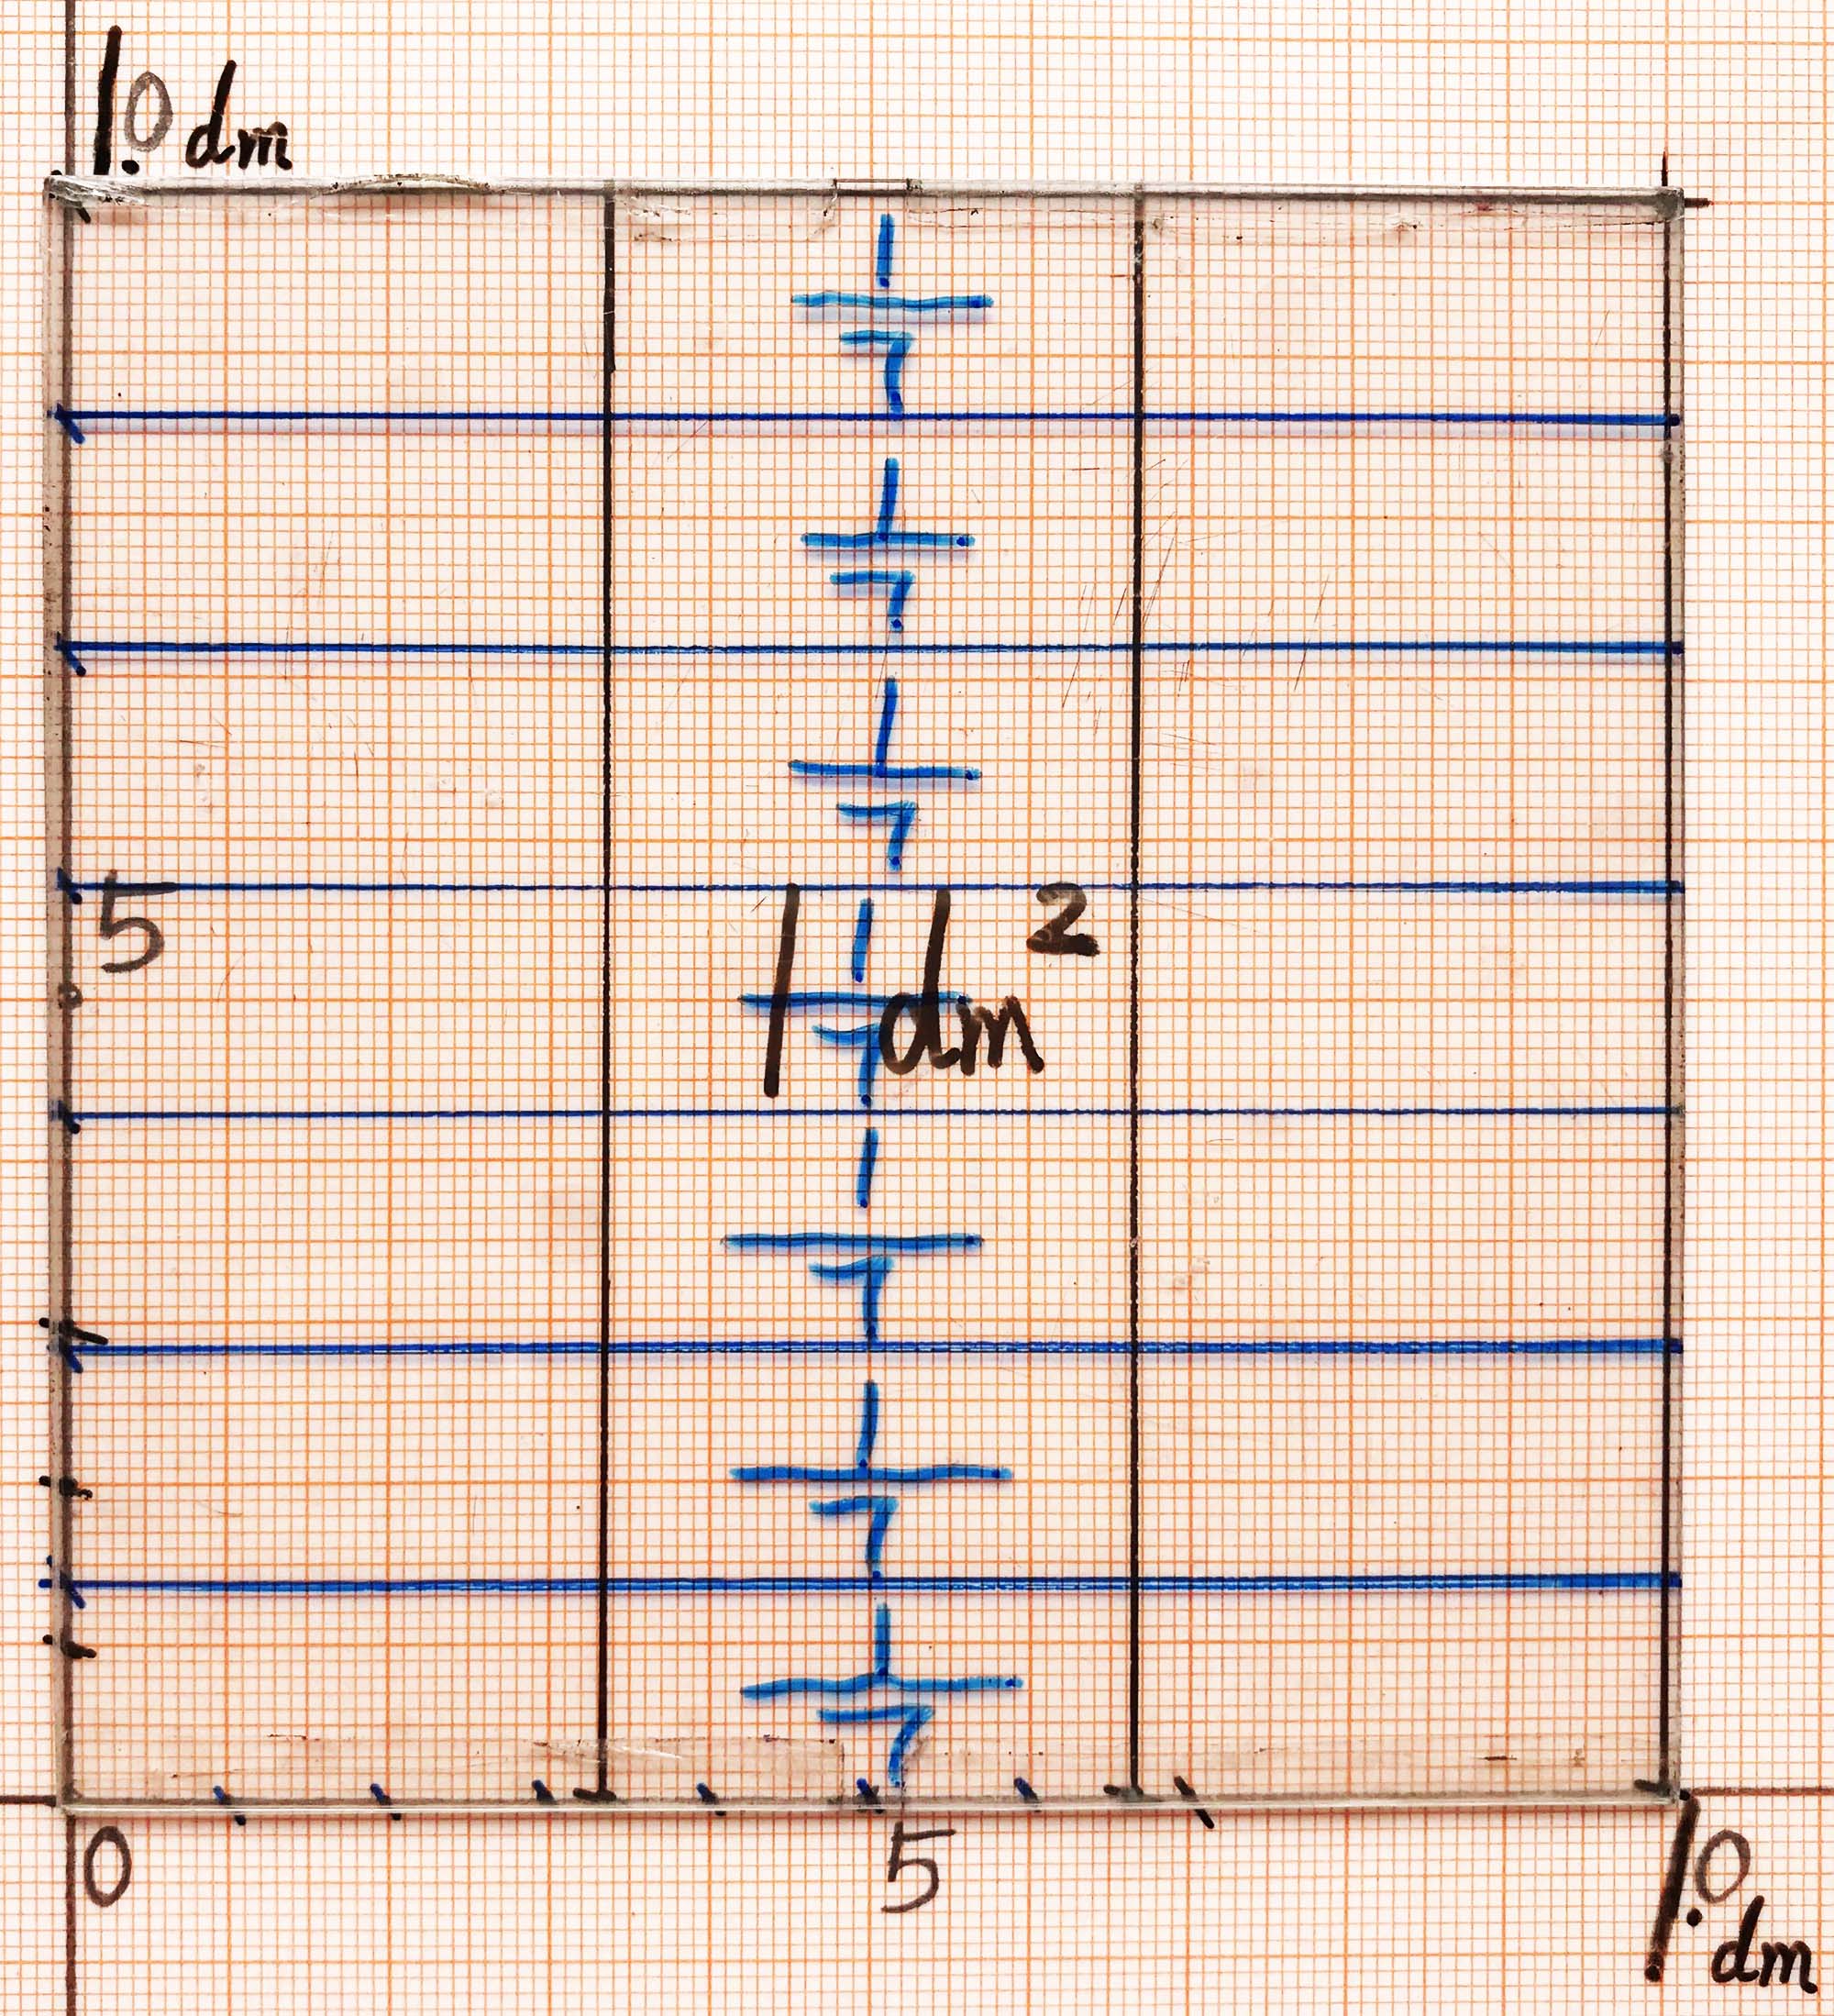 1.0 dm
1/7
1/7
1/7
5
1/7
1 dm²
1/7
1/7
1/7
0 5 1.0 dm